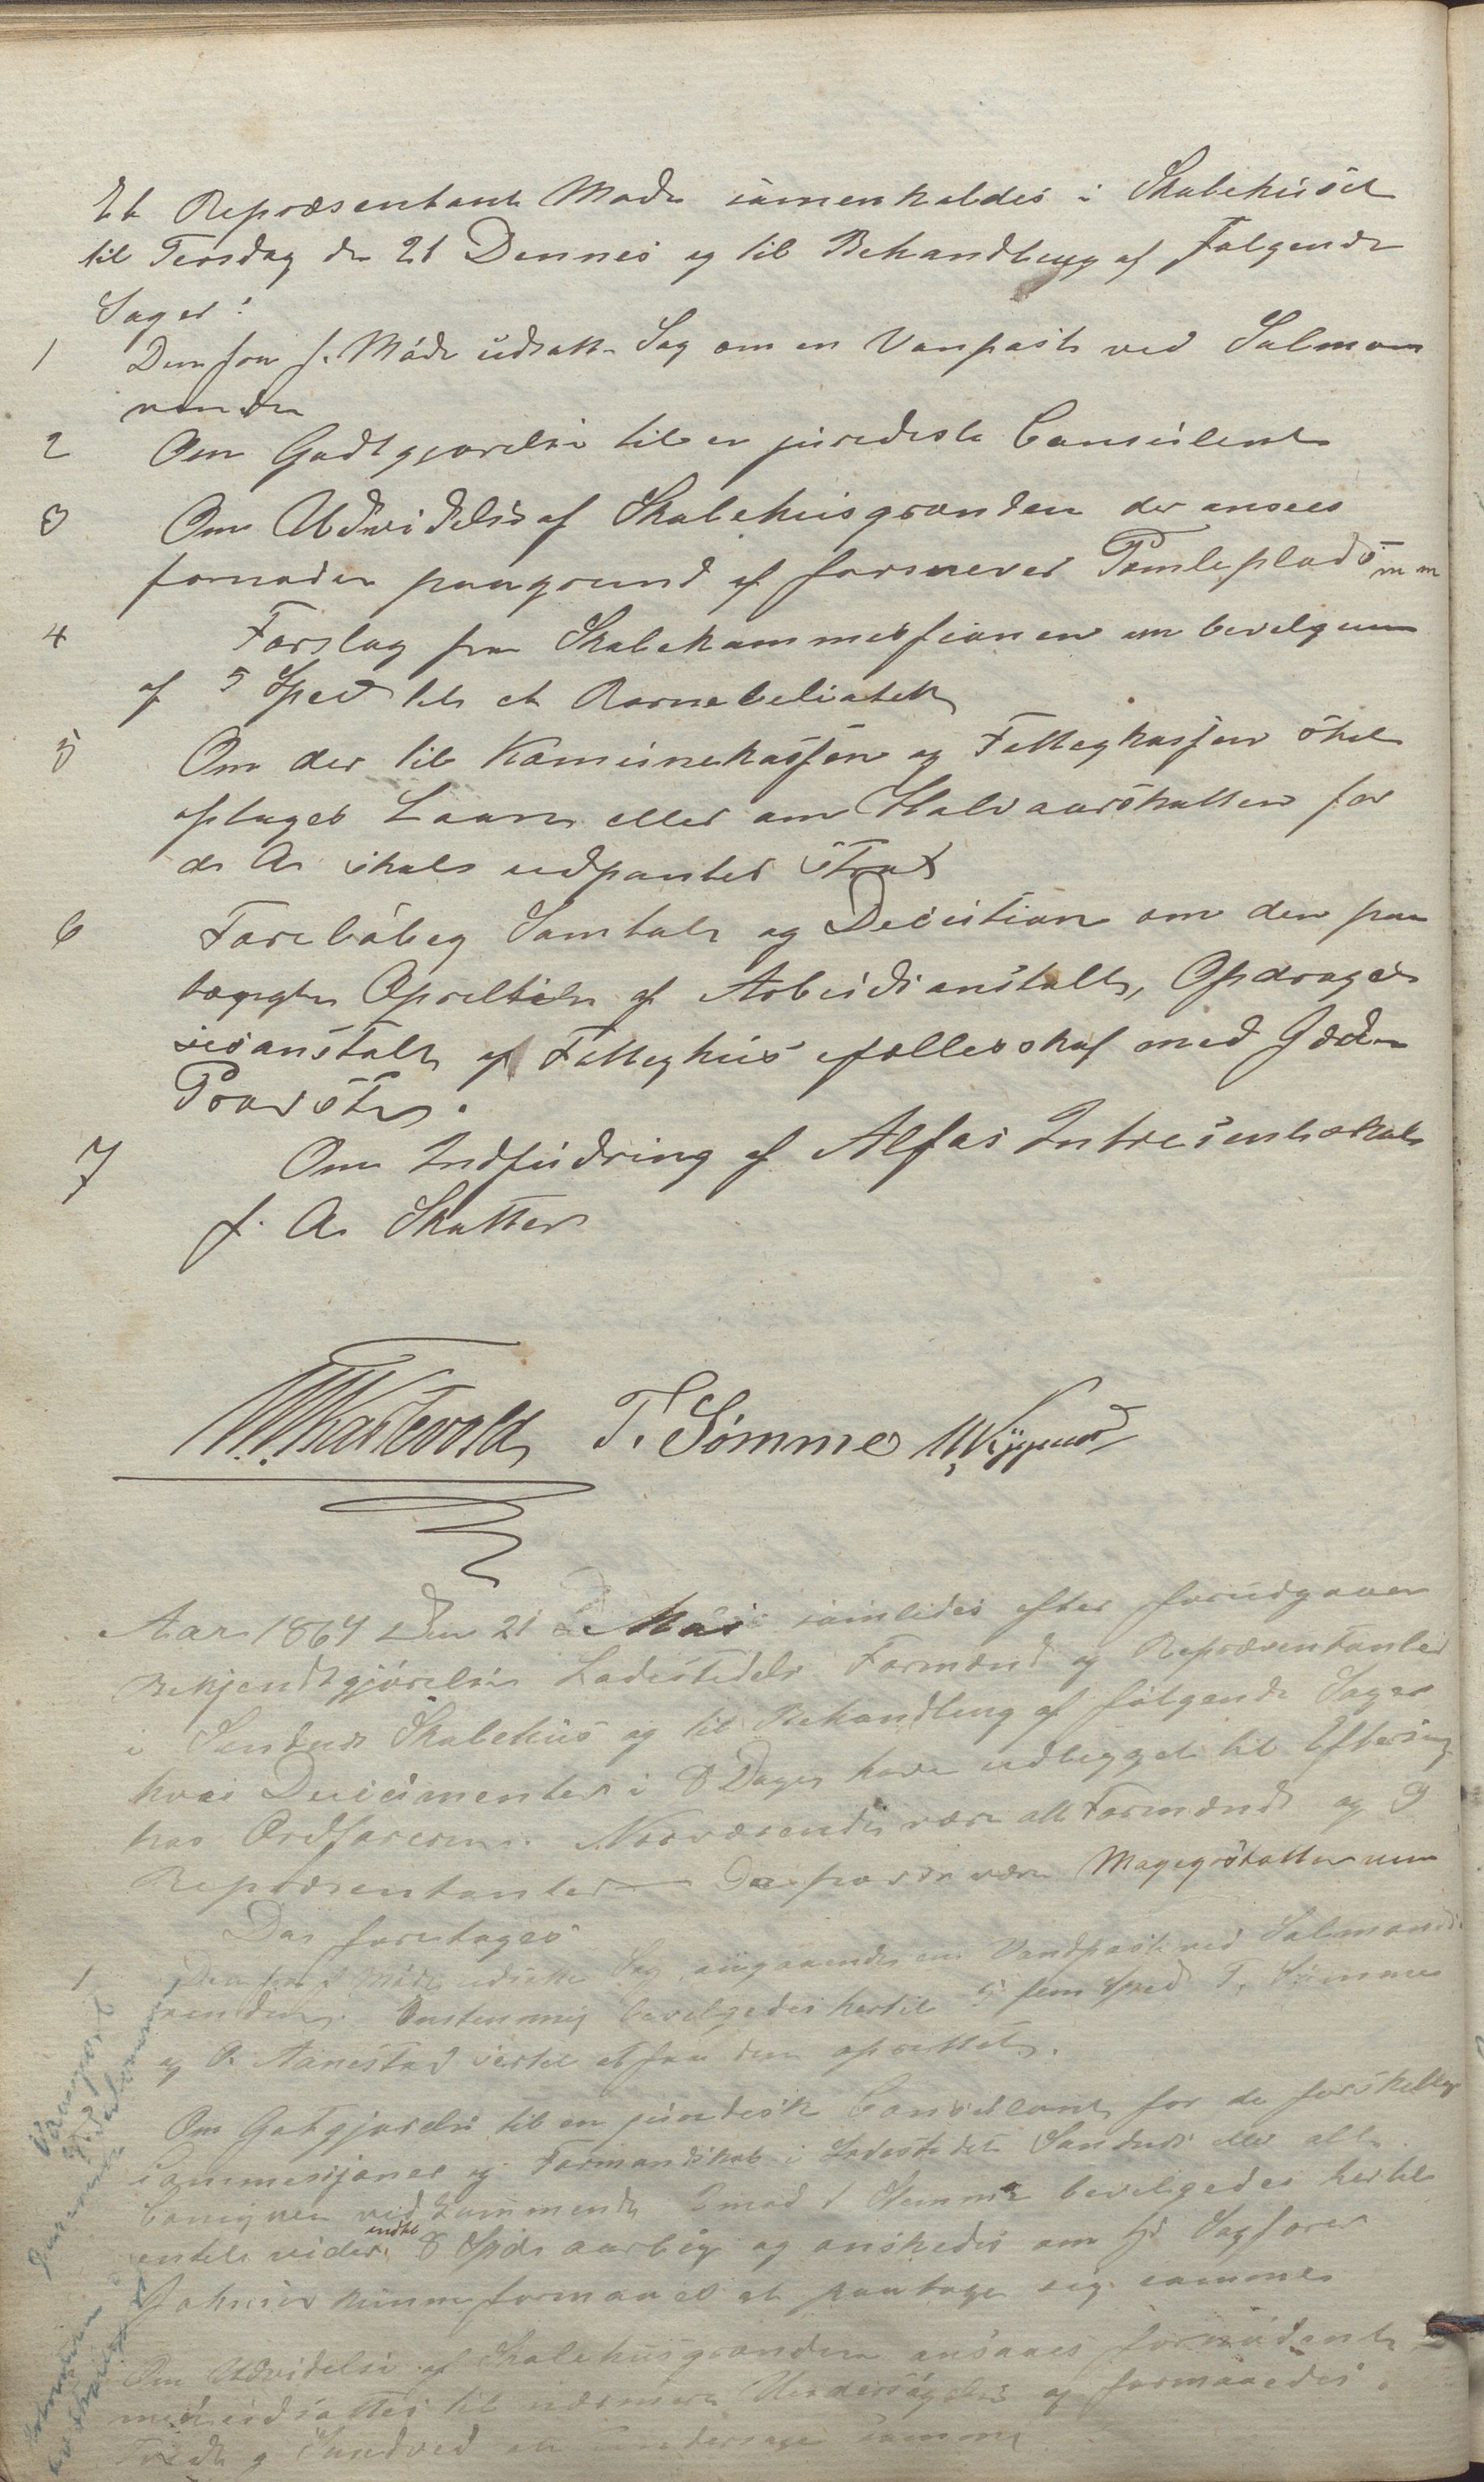 Et Repræsentant Møde samenkaldes i Skolehuset
til Tersdag de 21 Dennes og til Behandling af Følgende
Sager:
1 Den fra f. Møde udsatte Sag om en Vanpost ved Salmon
renden
2 Om Godtgjørelse til en juridisk Consulent
3 Om Udvidelse af Skolehusgrunden der ansees
fornøden paagrund af forsnever Tomteplads m m
4 Forslag fra Skolekommissionen om bevilgning
af 5 Spd til et Barnebibliotek
5 Om der til Kommunekassen og Fattigkassen skal
optages Laan eller om Halvaarskatten for
d. A. skal udpantes Strax
6 Foreløbig Samtale og Decision om den paa
tænkte Oprettelse af Arbeidsanstalt, Opdragel
sesanstalt og Fattighus i fællesskab med Jæderens
Provsti.
7 Om Indfudring af Alfas Intresentskab
f. A. Skatter
T. Sømme
Aar 1867 Den 21 Mai samledes efter forudgaaen
Bekjendtgjørelse Ladestedets Formænd og Repræsentanter
i Sandnes Skolehus og til Behandling af følgende Sager
hvis Documenter i 8 Dage have udligget til Eftersyn
hos Ordføreren. Nærværende vare alle Formænd og 9
Repræsentanter
Da foretoges
1 Den fra f Møde udsatte Sag angaaende en Vandpost ved Salmonds
renden. Enstemmig bevilgedes hertil 5 fem Spd T. Sømme
og O. Aanestad at faa den oprettet.
Om Gotgjørelse til en juridisk Consulent for de forskellige
Commissioner og Formandskab i Ladestedet Sandnes eller alle
vedkommende mod 1 Stemme bevilgedes hertil
indtil videre 8 Spd aarlig og ønskedes om Hr Sagfører
kunne formaaes at paatage sig samme
Om Udvidelse af Skolehusgrunden ansaaes fornødent
men udsattes til nærmere Undersøgelse og formaaedes
Tvedt og Sandved at undersøge samme